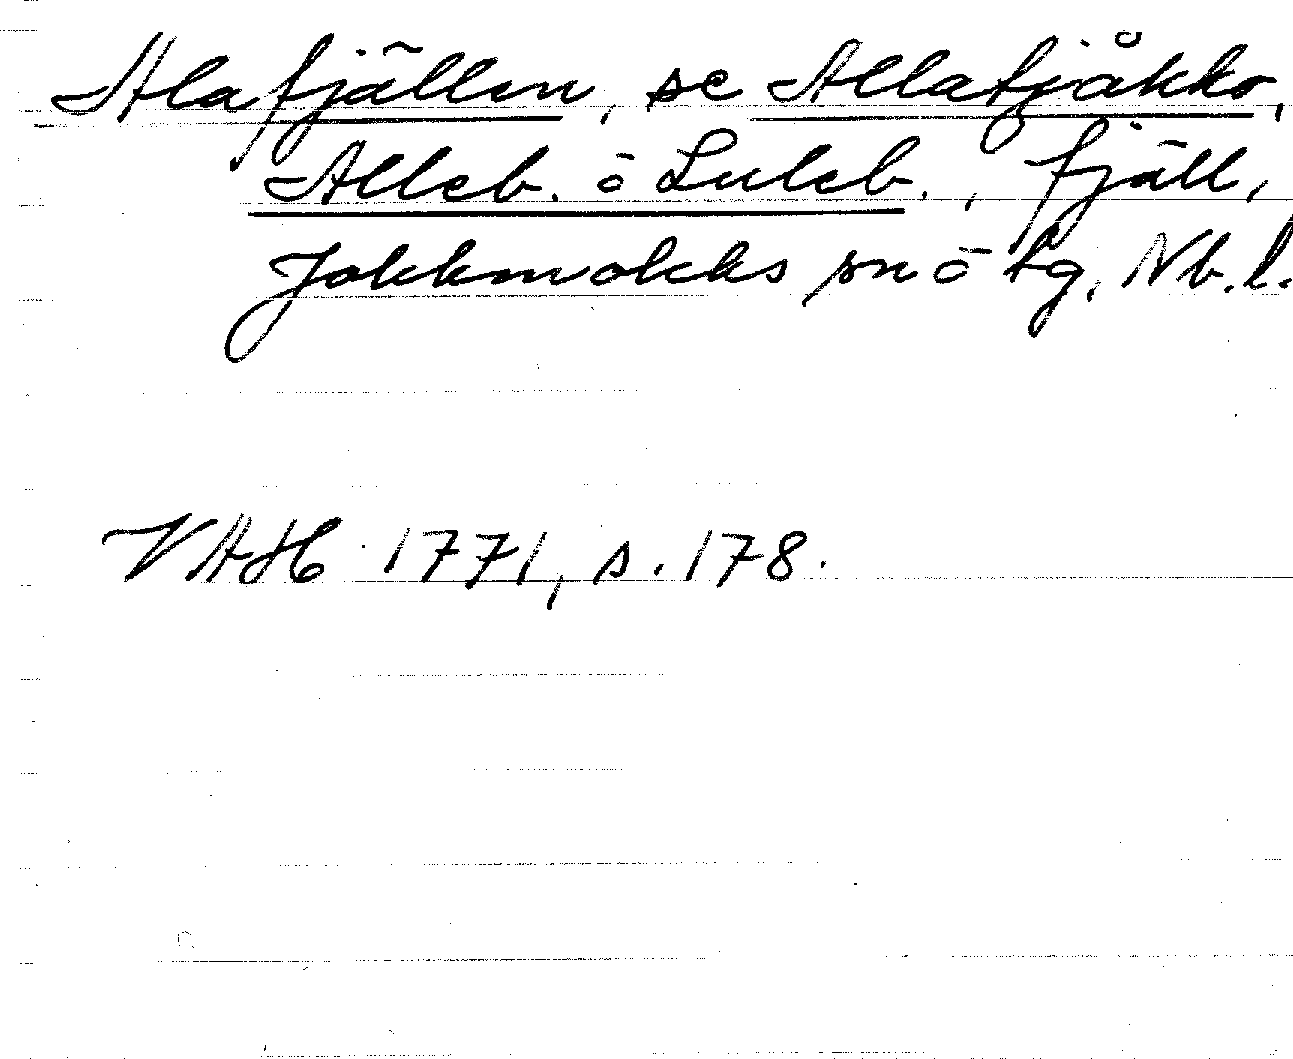 Alafjällen, se Allatjåkko,
Alleb. ō Luleb., fjäll,
Jokkmokks sn ō tg, Nb. l.
VAH 1771, s. 178.